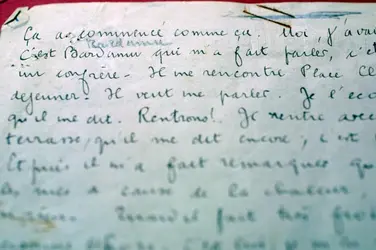 Ça a commencé comme ça. Moi, j'avai
C'est Bardamu qui m'a fait parler, c'é
un confrère. Il me rencontre Place Cl
dejeuner. Il veut me parler. Je l'eco
qu'il me dit. Rentrons! Je rentre avec
terrasse, qu'il me dit encore, c'est
Et puis il m'a fait remarquer qu
les rues a cause de la chaleur,
Quand il fait très froi